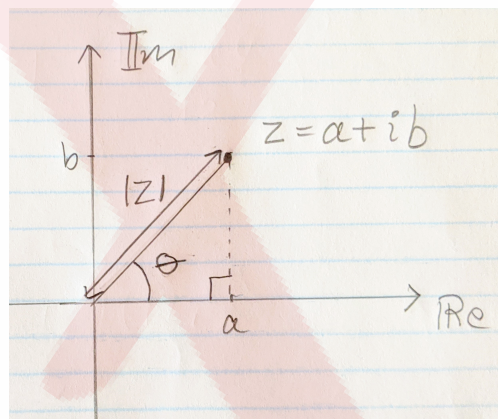 Im
z = a + ib
b
|z|
θ
a
Re